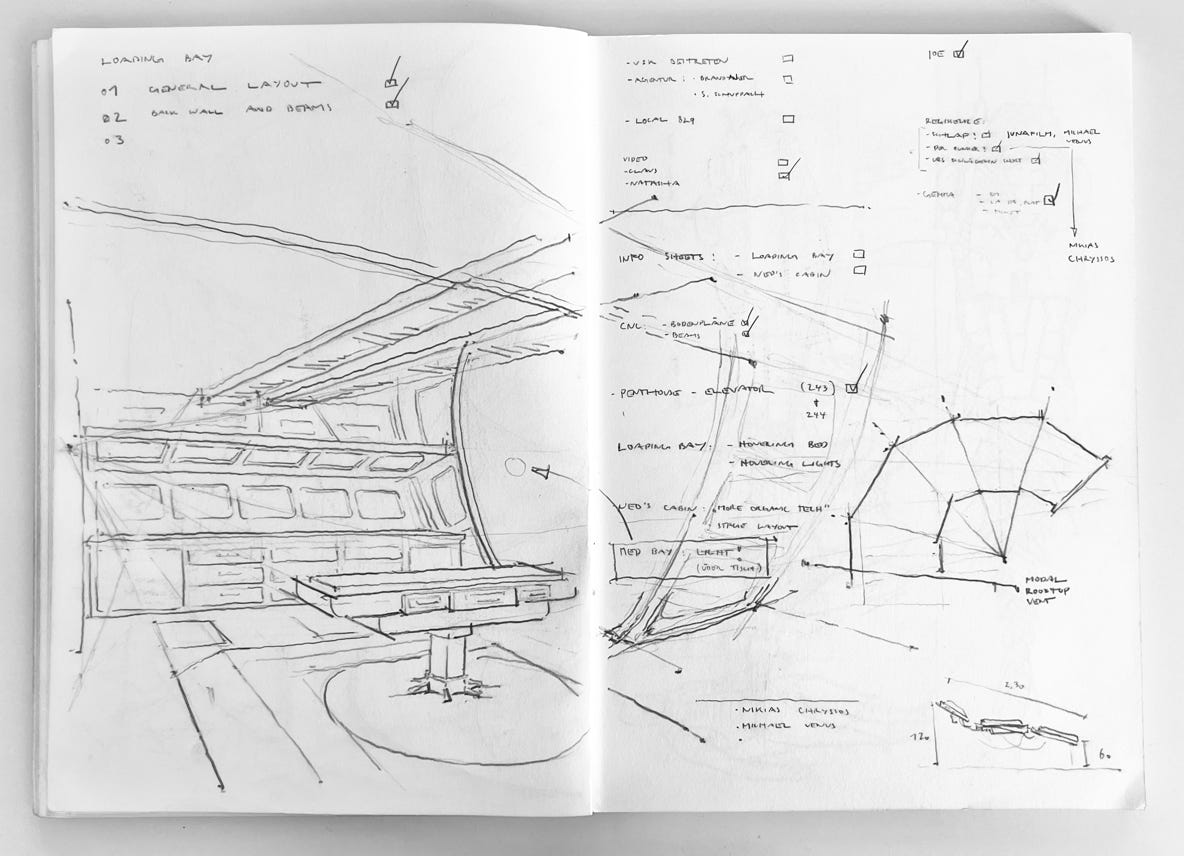 LOADING BAY
01 GENERAL LAYOUT
02 BACK WALL AND BEAMS
03
- VSK BEITRETEN
- AGENTUR : · BRANDTNER
· S. SCHUPPACH
- LOCAL 829
VIDEO
- CLAUS
- NATASHA
INFO SHEETS : - LOADING BAY
- NED'S CABIN
CNL: - BODENPLÄNE
- BEAMS
- PENTHOUSE - ELEVATOR (243)
+
244
LOADING BAY : - HOVERING BED
- HOVERING LIGHTS
NED'S CABIN : "MORE ORGANIC TECH"
STAGE LAYOUT
MED BAY : LIGHT
(ÜBER TISCH)
· NIKIAS CHRYSSOS
· MICHAEL VENUS
JOE
REGISSEURE:
- SCHLAF : JUNAFILM, MICHAEL
VENUS
- DER BUNKER :
NIKIAS
CHRYSSOS
- GEMMA
MODAL
ROOFTOP
VENT
2,30
120
60